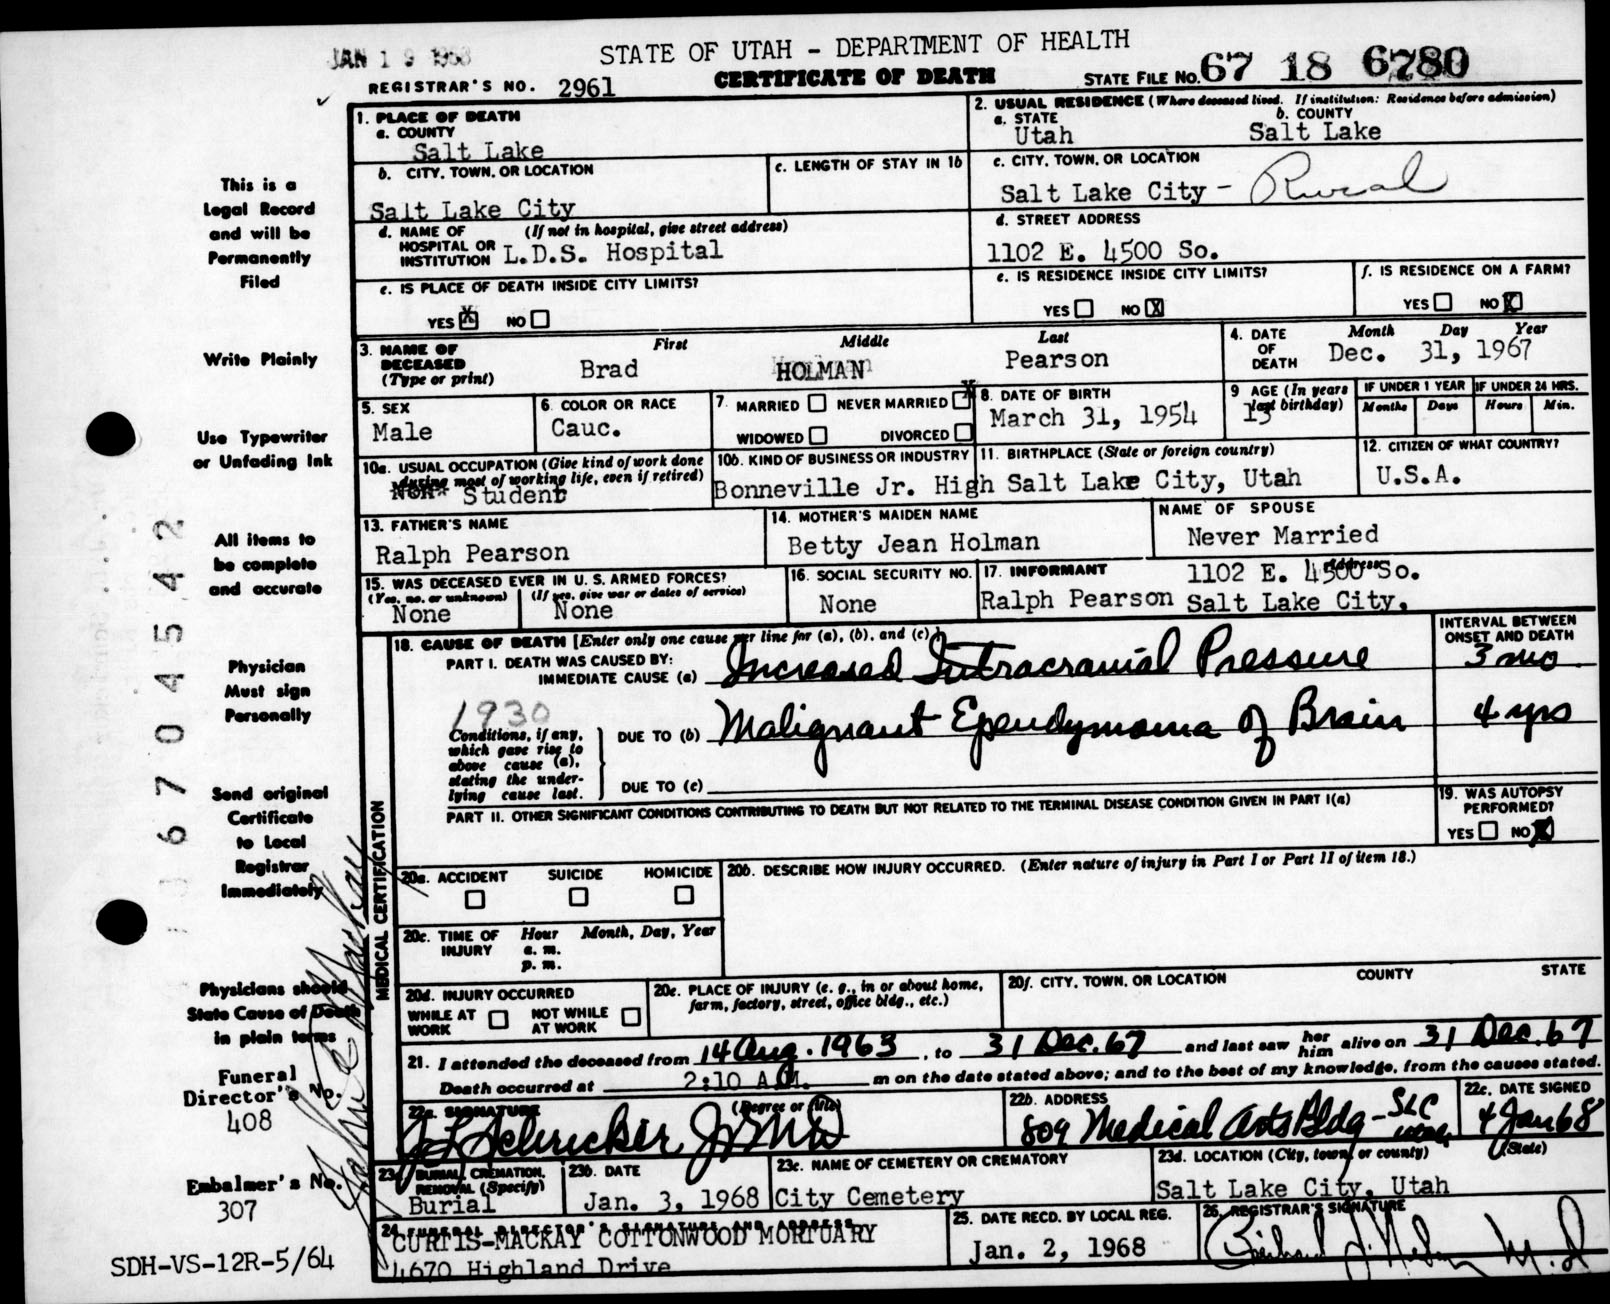 JAN 19 1968
STATE OF UTAH - DEPARTMENT OF HEALTH
REGISTRAR'S NO. 2961
CERTIFICATE OF DEATH
STATE FILE NO. 67 18 6780
1. PLACE OF DEATH
a. COUNTY
Salt Lake
2. USUAL RESIDENCE (Where deceased lived. If institution: Residence before admission)
a. STATE
Utah
b. COUNTY
Salt Lake
b. CITY, TOWN, OR LOCATION
Salt Lake City
c. LENGTH OF STAY IN 1b
c. CITY, TOWN, OR LOCATION
Salt Lake City - Rural
d. NAME OF HOSPITAL OR INSTITUTION (If not in hospital, give street address)
L.D.S. Hospital
d. STREET ADDRESS
1102 E. 4500 So.
e. IS PLACE OF DEATH INSIDE CITY LIMITS?
YES X NO
e. IS RESIDENCE INSIDE CITY LIMITS?
YES NO X
f. IS RESIDENCE ON A FARM?
YES NO X
3. NAME OF DECEASED (Type or print)
First Middle Last
Brad HOLMAN Pearson
4. DATE OF DEATH
Month Day Year
Dec. 31, 1967
5. SEX
Male
6. COLOR OR RACE
Cauc.
7. MARRIED NEVER MARRIED X
WIDOWED DIVORCED
8. DATE OF BIRTH
March 31, 1954
9 AGE (In years last birthday)
13
IF UNDER 1 YEAR
Months Days
IF UNDER 24 HRS.
Hours Min.
10a. USUAL OCCUPATION (Give kind of work done during most of working life, even if retired)
Student
10b. KIND OF BUSINESS OR INDUSTRY
Bonneville Jr. High
11. BIRTHPLACE (State or foreign country)
Salt Lake City, Utah
12. CITIZEN OF WHAT COUNTRY?
U.S.A.
13. FATHER'S NAME
Ralph Pearson
14. MOTHER'S MAIDEN NAME
Betty Jean Holman
NAME OF SPOUSE
Never Married
15. WAS DECEASED EVER IN U. S. ARMED FORCES?
(Yes, no, or unknown) (If yes, give war or dates of service)
None None
16. SOCIAL SECURITY NO.
None
17. INFORMANT Address
Ralph Pearson
1102 E. 4500 So.
Salt Lake City,
MEDICAL CERTIFICATION
18. CAUSE OF DEATH [Enter only one cause per line for (a), (b), and (c).]
INTERVAL BETWEEN ONSET AND DEATH
PART I. DEATH WAS CAUSED BY:
IMMEDIATE CAUSE (a) Increased Intracranial Pressure 3 mo
1930
Conditions, if any, which gave rise to above cause (a), stating the underlying cause last.
DUE TO (b) Malignant Ependymoma of Brain 4 yrs
DUE TO (c)
PART II. OTHER SIGNIFICANT CONDITIONS CONTRIBUTING TO DEATH BUT NOT RELATED TO THE TERMINAL DISEASE CONDITION GIVEN IN PART I(a)
19. WAS AUTOPSY PERFORMED?
YES NO X
20a. ACCIDENT SUICIDE HOMICIDE
20b. DESCRIBE HOW INJURY OCCURRED. (Enter nature of injury in Part I or Part II of item 18.)
20c. TIME OF INJURY
Hour Month, Day, Year
a. m.
p. m.
20d. INJURY OCCURRED
WHILE AT WORK NOT WHILE AT WORK
20e. PLACE OF INJURY (e. g., in or about home, farm, factory, street, office bldg., etc.)
20f. CITY, TOWN, OR LOCATION COUNTY STATE
21. I attended the deceased from 14 Aug. 1963, to 31 Dec. 67 and last saw her him alive on 31 Dec. 67
Death occurred at 2:10 A.M. m on the date stated above; and to the best of my knowledge, from the causes stated.
22a. SIGNATURE (Degree or title)
J L Schricker Jr MD
22b. ADDRESS
809 Medical Arts Bldg - SLC Utah
22c. DATE SIGNED
4 Jan 68
23a. BURIAL, CREMATION, REMOVAL (Specify)
Burial
23b. DATE
Jan. 3, 1968
23c. NAME OF CEMETERY OR CREMATORY
City Cemetery
23d. LOCATION (City, town, or county) (State)
Salt Lake City, Utah
24 FUNERAL DIRECTOR'S SIGNATURE AND ADDRESS
CURTIS-MACKAY COTTONWOOD MORTUARY
4670 Highland Drive
25. DATE RECD. BY LOCAL REG.
Jan. 2, 1968
26. REGISTRAR'S SIGNATURE
M.D
This is a
Legal Record
and will be
Permanently
Filed
Write Plainly
Use Typewriter
or Unfading Ink
All items to
be complete
and accurate
Physician
Must sign
Personally
Send original
Certificate
to Local
Registrar
Immediately
Physicians should
State Cause of Death
in plain terms
Funeral
Director's No.
408
Embalmer's No.
307
SDH-VS-12R-5/64